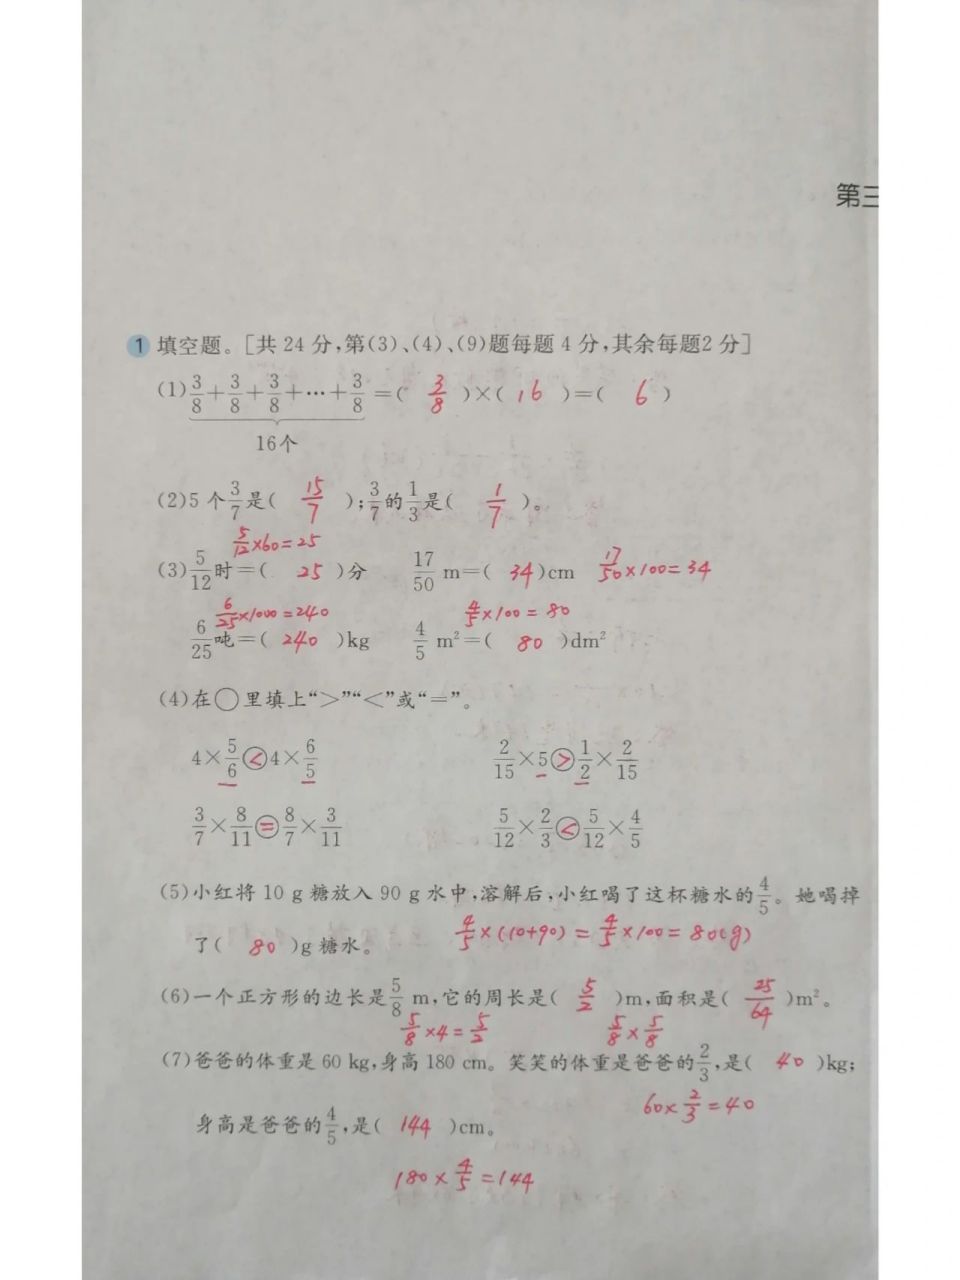 第三
1 填空题。[共 24 分,第(3)、(4)、(9)题每题 4 分,其余每题2 分]
(1) 3/8+3/8+3/8+…+3/8 =( 3/8 )×( 16 )=( 6 )
16个
(2)5 个3/7是( 15/7 );3/7的1/3是( 1/7 )。
5/12×60=25
(3)5/12时=( 25 )分 17/50 m=( 34 )cm 17/50×100=34
6/25×1000=240 4/5×100=80
6/25吨=( 240 )kg 4/5 m²=( 80 )dm²
(4)在○里填上“>”“<”或“=”。
4×5/6<4×6/5 2/15×5>1/2×2/15
3/7×8/11=8/7×3/11 5/12×2/3<5/12×4/5
(5)小红将 10 g 糖放入 90 g 水中,溶解后,小红喝了这杯糖水的4/5。她喝掉
4/5×(10+90)=4/5×100=80(g)
了( 80 )g 糖水。
(6)一个正方形的边长是5/8 m,它的周长是( 5/2 )m,面积是( 25/64 )m²。
5/8×4=5/2 5/8×5/8
(7)爸爸的体重是 60 kg,身高 180 cm。笑笑的体重是爸爸的2/3,是( 40 )kg;
60×2/3=40
身高是爸爸的4/5,是( 144 )cm。
180×4/5=144